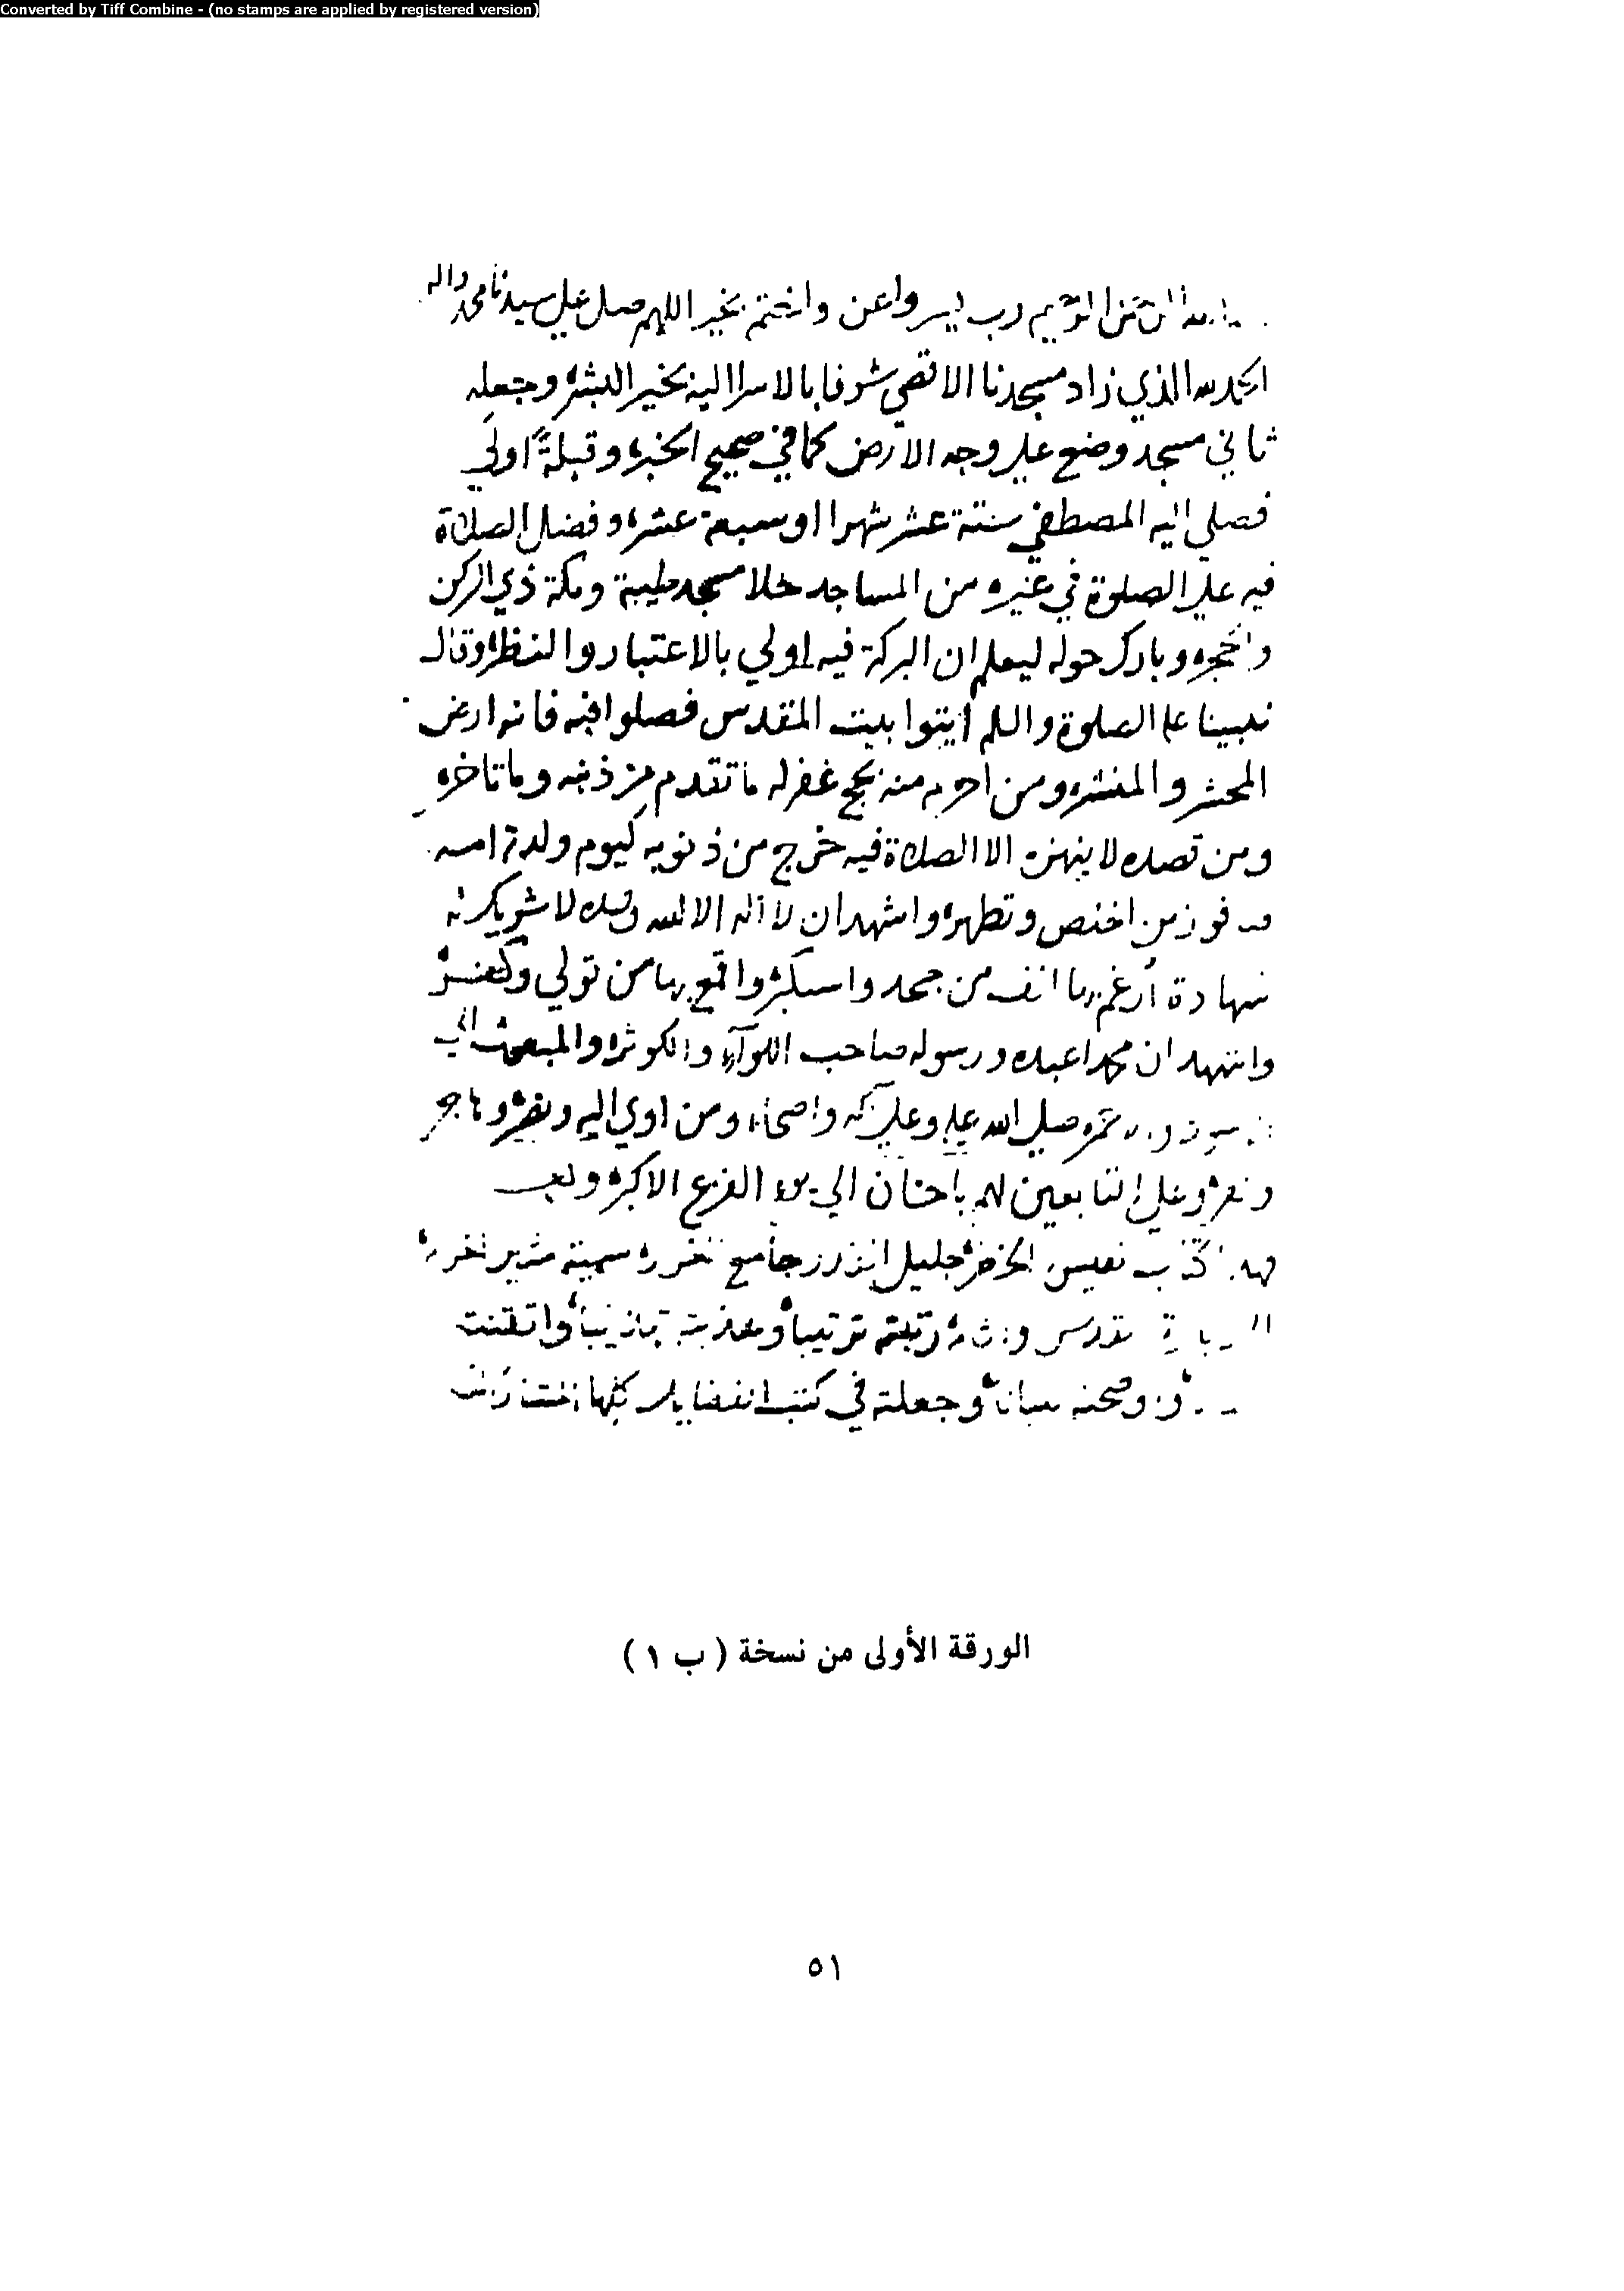 Converted by Tiff Combine - (no stamps are applied by registered version)
رب يسر واعن واختم بخير اللهم صل على سيدنا محمد واله
الحمد لله الذي زاد مسجدنا الاقصى شرفا بالاسرا اليه بخير البشر وجعله
ثاني مسجد وضع على وجه الارض كما في صحيح الخبر وقبلة اولى
فصلى اليه المصطفى ستة عشر شهرا او سبعة عشر وفضل الصلاة
فيه على الصلوة في غيره من المساجد خلا مسجد طيبة ومكة ذي الركن
والحجر وبارك حوله ليعلم ان البركة فيه اولى بالاعتبار والنظر وقال
نبينا عليه الصلوة والسلام ايتوا بيت المقدس فصلوا فيه فانه ارض
المحشر والمنشر ومن احرم منه بحج غفر له ما تقدم من ذنبه وما تاخر
ومن قصده لا ينهزه الا الصلاة فيه خرج من ذنوبه كيوم ولدته امه
فوز من اختص وتطهر واشهد ان لا اله الا الله وحده لا شريك له
شهادة أرغم بها انف من جحد واستكبر واقمع بها من تولى وكفر
واشهد ان محمدا عبده ورسوله صاحب اللوآء والكوثر والمبعوث الى
صلى الله عليه وعلى آله واصحابه ومن اوى اليه ونصر وهاجر
وعلى التابعين لهم باحسان الى يوم الفزع الاكبر وبعد
فهذا كتاب نفيس الخطر جليل القدر جامع
رتبته ترتيبا وهذبته تهذيبا واتقنته
واوضحته بيانا وجعلته في كتب الفضايل كلها
الورقة الأولى من نسخة ( ب ١ )
٥١